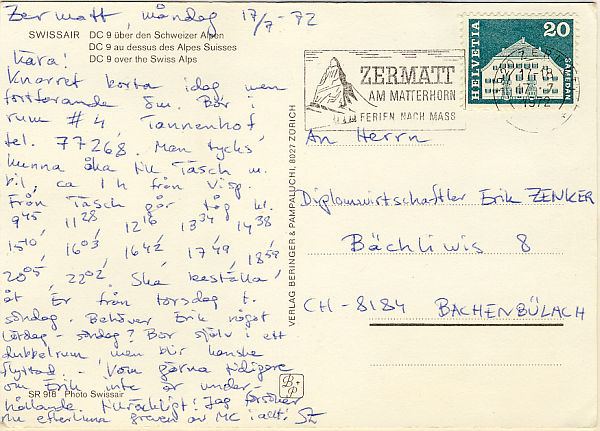 Zermatt, måndag 17/7-72
SWISSAIR DC 9 über den Schweizer Alpen
DC 9 au dessus des Alpes Suisses
DC 9 over the Swiss Alps
Kära!
Knorret korta idag men
fortfarande öm. Bor i
rum # 4, Tannenhof
tel. 77268. Man tycks
kunna åka till Täsch m.
bil, ca 1 h från Visp.
Från Täsch går tåg kl.
9⁴⁵, 11²⁸, 12¹⁶ 13³⁴ 14³⁸,
15¹⁰, 16⁰³, 16⁴², 17⁴⁹, 18⁵⁹
20⁰⁵, 22⁰². Ska beställa
åt Er från torsdag t.
söndag. Behöver Erik något
lördag - söndag? Bor själv i ett
dubbelrum, men blir kanske
flyttad. - Vom gärna tidigare
om Erik inte är under-
hållande. Jag försöker
nu efterlikna graven av MC i allt! SZ
SR 918 Photo Swissair
B+P
VERLAG BERINGER & PAMPALUCHI, 8027 ZÜRICH
ZERMATT
AM MATTERHORN
FERIEN NACH MASS
ZERMATT
1972
HELVETIA
20
SAMEDAN
An Herrn
Diplomwirtschaftler Erik ZENKER
Bächliwis 8
CH-8184 BACHENBÜLACH